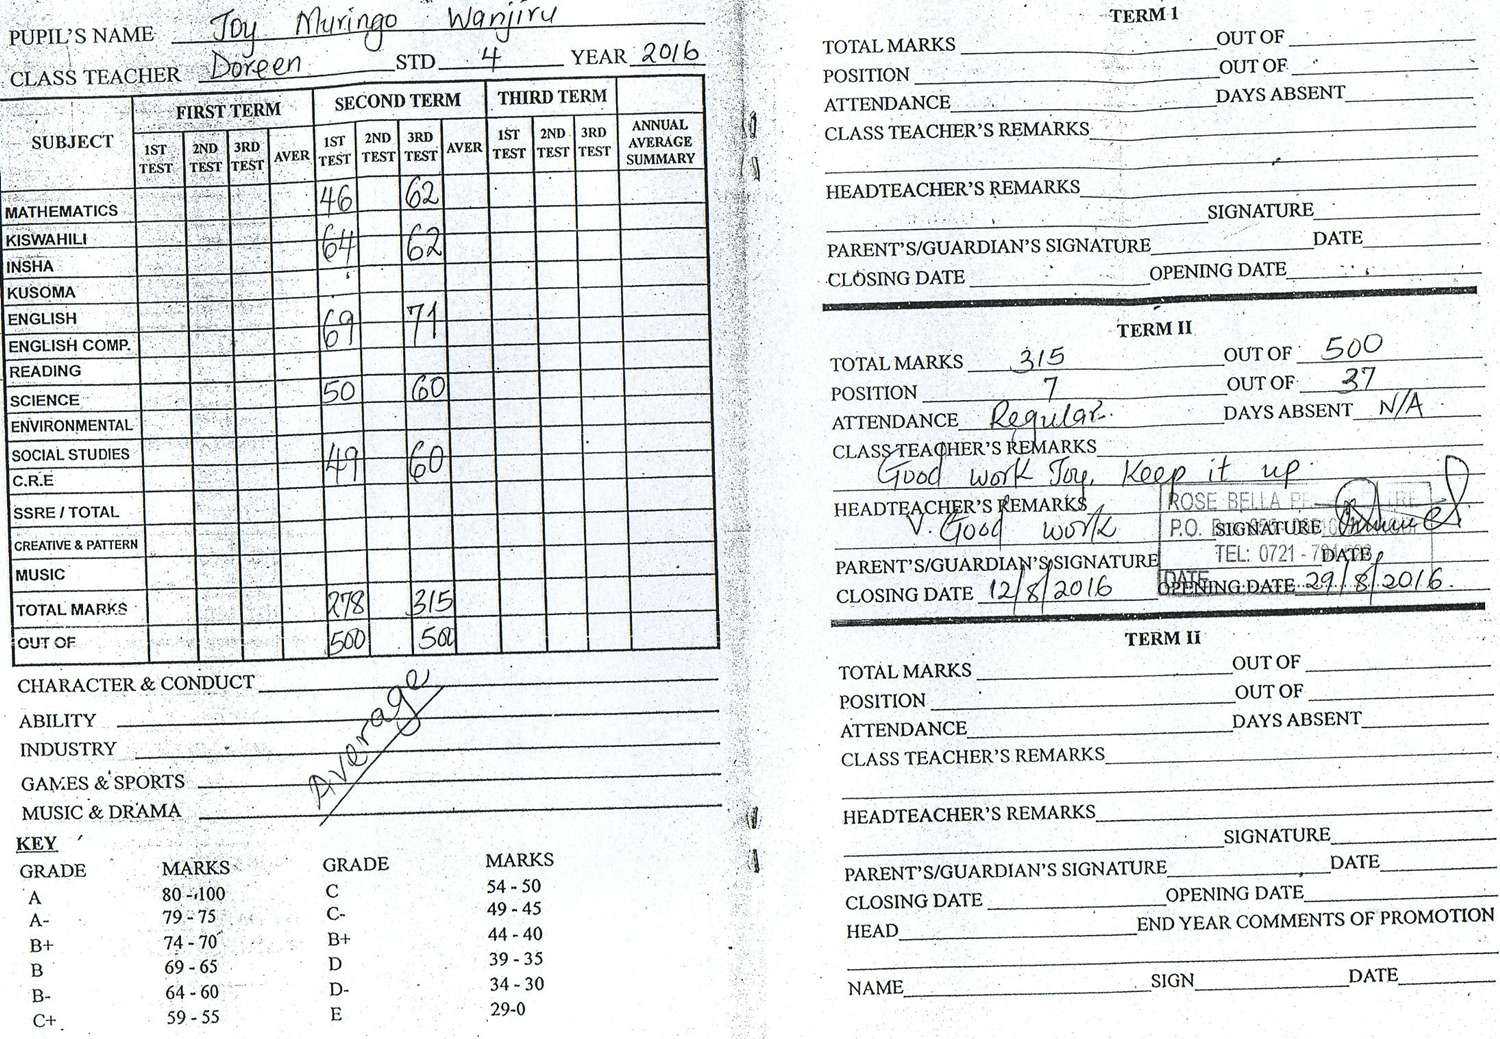 PUPIL'S NAME Joy Muringo Wanjiru
CLASS TEACHER Doreen STD 4 YEAR 2016
SUBJECT FIRST TERM SECOND TERM THIRD TERM
1ST TEST 2ND TEST 3RD TEST AVER 1ST TEST 2ND TEST 3RD TEST AVER 1ST TEST 2ND TEST 3RD TEST ANNUAL AVERAGE SUMMARY
MATHEMATICS 46 62
KISWAHILI 64 62
INSHA
KUSOMA
ENGLISH 69 71
ENGLISH COMP.
READING
SCIENCE 50 60
ENVIRONMENTAL
SOCIAL STUDIES 49 60
C.R.E
SSRE / TOTAL
CREATIVE & PATTERN
MUSIC
TOTAL MARKS 278 315
OUT OF 500 500
CHARACTER & CONDUCT
ABILITY
INDUSTRY
GAMES & SPORTS
MUSIC & DRAMA
Average
KEY
GRADE MARKS GRADE MARKS
A 80 - 100 C 54 - 50
A- 79 - 75 C- 49 - 45
B+ 74 - 70 B+ 44 - 40
B 69 - 65 D 39 - 35
B- 64 - 60 D- 34 - 30
C+ 59 - 55 E 29-0
TERM 1
TOTAL MARKS OUT OF
POSITION OUT OF
ATTENDANCE DAYS ABSENT
CLASS TEACHER'S REMARKS
HEADTEACHER'S REMARKS
SIGNATURE
PARENT'S/GUARDIAN'S SIGNATURE DATE
CLOSING DATE OPENING DATE
TERM II
TOTAL MARKS 315 OUT OF 500
POSITION 7 OUT OF 37
ATTENDANCE Regular. DAYS ABSENT N/A
CLASS TEACHER'S REMARKS
Good work Joy, Keep it up.
HEADTEACHER'S REMARKS
V. Good work SIGNATURE
ROSE BELLA
P.O.
TEL: 0721 -
DATE
PARENT'S/GUARDIAN'S SIGNATURE DATE
CLOSING DATE 12/8/2016 OPENING DATE 29/8/2016.
TERM II
TOTAL MARKS OUT OF
POSITION OUT OF
ATTENDANCE DAYS ABSENT
CLASS TEACHER'S REMARKS
HEADTEACHER'S REMARKS
SIGNATURE
PARENT'S/GUARDIAN'S SIGNATURE DATE
CLOSING DATE OPENING DATE
HEAD END YEAR COMMENTS OF PROMOTION
NAME SIGN DATE